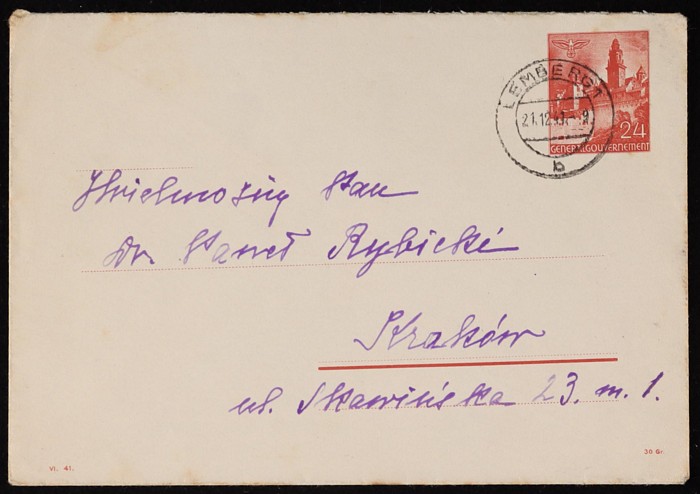 LEMBERG 1
21.12.
b
24
GENERALGOUVERNEMENT
Wielmożny Pan
dr. Paweł Rybicki
Kraków
ul. Skawińska 23. m. 1.
VI. 41.
30 Gr.